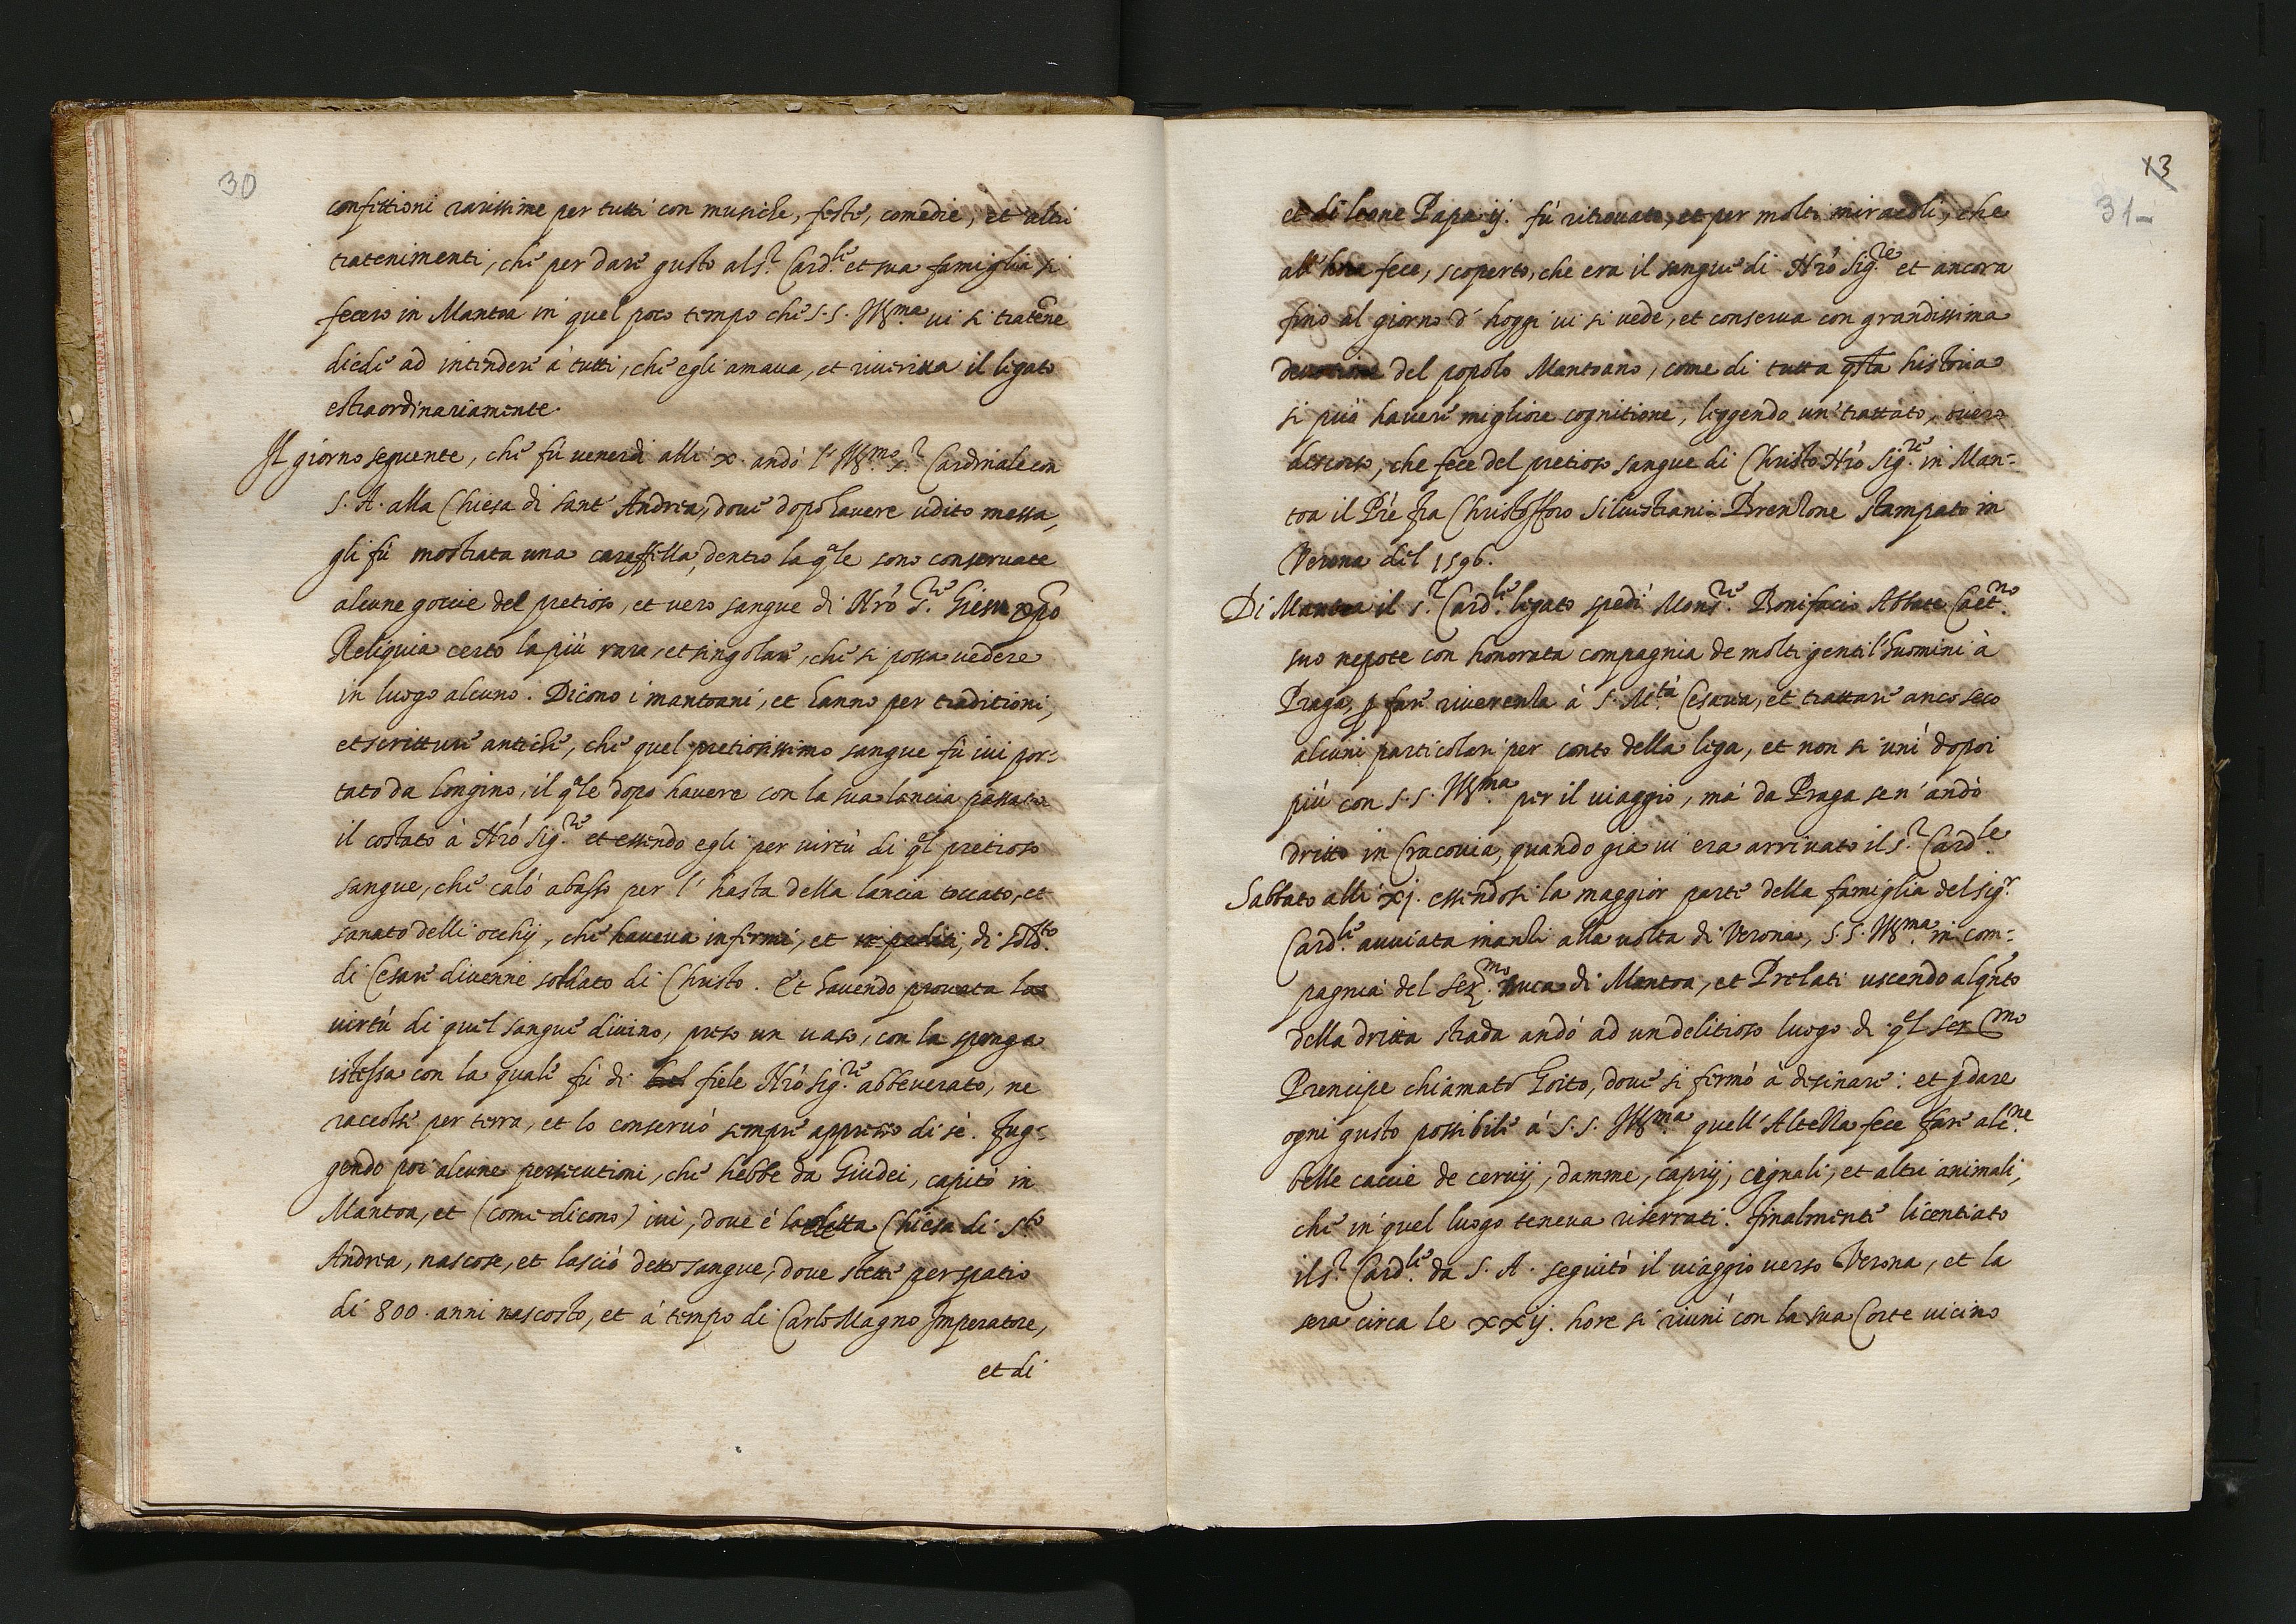 30
confittioni rarissime per tutti con musiche, feste, comedie, et altri
tratenimenti, che per dare gusto al s.r Card.le et sua famiglia si
fecero in Mantoa in quel poco tempo che S.S. Ill.ma vi si tratene
diede ad intendere à tutti, che egli amaua, et riueriua il legato
estraordinariamente.
Il giorno seguente, che fù venerdi alli x. andò l'Ill.mo s.r Cardinale con
S. A. alla Chiesa di sant' Andrea, doue dopo hauere udito messa,
gli fù mostrata una caraffella, dentro la qle sono conseruate
alcune goccie del pretioso, et vero sangue di Nro S.re Giesu Xpo
Reliquia certo la più rara, et singolare, che si possa vedere
in luogo alcuno. Dicono i mantoani, et hanno per traditioni,
et scritture antiche, che quel pretiosissimo sangue fù iui por=
tato da longino, il qle dopo hauere con la sua lancia passato
il costato à Nro Sig.re et essendo egli per virtù di ql pretioso
sangue, che calò abasso per l'hasta della lancia toccato, et
sanato delli occhij, che haueua infermi, et di sold.to
di Cesare diuenne soldato di Christo. Et hauendo prouata la
virtù di quel sangue diuino, preso un uaso, con la sponga
istessa con la quale fù di fiele Nro Sig.re abbeuerato, ne
raccolse per terra, et lo conseruò sempre appresso di sè. Fug=
gendo poi alcune persecutioni, che hebbe da Giudei, capitò in
Mantoa, et (come dicono) iui, doue è la detta Chiesa di S.to
Andrea, nascose, et lasciò detto sangue, doue stette per spatio
di 800. anni nascosto, et à tempo di Carlo Magno Imperatore,
et di
13
31
et di leone Papa ij. fù ritrouato, et per molti miracoli, che
all'hora fece, scoperto, che era il sangue di Nro Sig.re et ancora
fino al giorno d'hoggi vi si vede, et conserua con grandissima
deuotione del popolo Mantoano, come di tutta qsta historia
si può hauere migliore cognitione, leggendo un' trattato, ouero
discorso, che fece del pretioso sangue di Christo Nro Sig.re in Man=
toa il Pre fra Christofforo Siluestrani Brenzone stampato in
Verona del 1596.
Di Mantoa il s.r Card.le legato spedì Mons.re Bonifacio Abbate Caet.no
suo nepote con honorata compagnia de molti gentil'huomini à
Praga, p fare riuerenza à S. M.tà Cesarea, et trattare anco seco
alcuni particolari per conto della lega, et non si unì dopoi
più con S.S. Ill.ma per il uiaggio, mà da Praga sen' andò
dritto in Cracouia, quando gia ui era arriuato il s.r Card.le
Sabbato alli xj. essendosi la maggior parte della famiglia del sig.r
Card.le auuiata inanzi alla uolta di Verona, S.S. Ill.ma in com=
pagnia del Ser.mo Duca di Mantoa, et Prelati uscendo alqnto
della dritta strada andò ad un delitioso luogo di ql Ser.mo
Prencipe chiamato Goito, doue si fermò à desinare: et p dare
ogni gusto possibile à S.S. Ill.ma quell'Altezza fece fare alc.ne
belle caccie de ceruij, damme, caprij, cignali, et altri animali,
che in quel luogo teneua riserrati. Finalmente licentiato
il s.r Card.le da S. A. seguitò il uiaggio verso Verona, et la
sera circa le xxij. hore si riunì con la sua Corte uicino